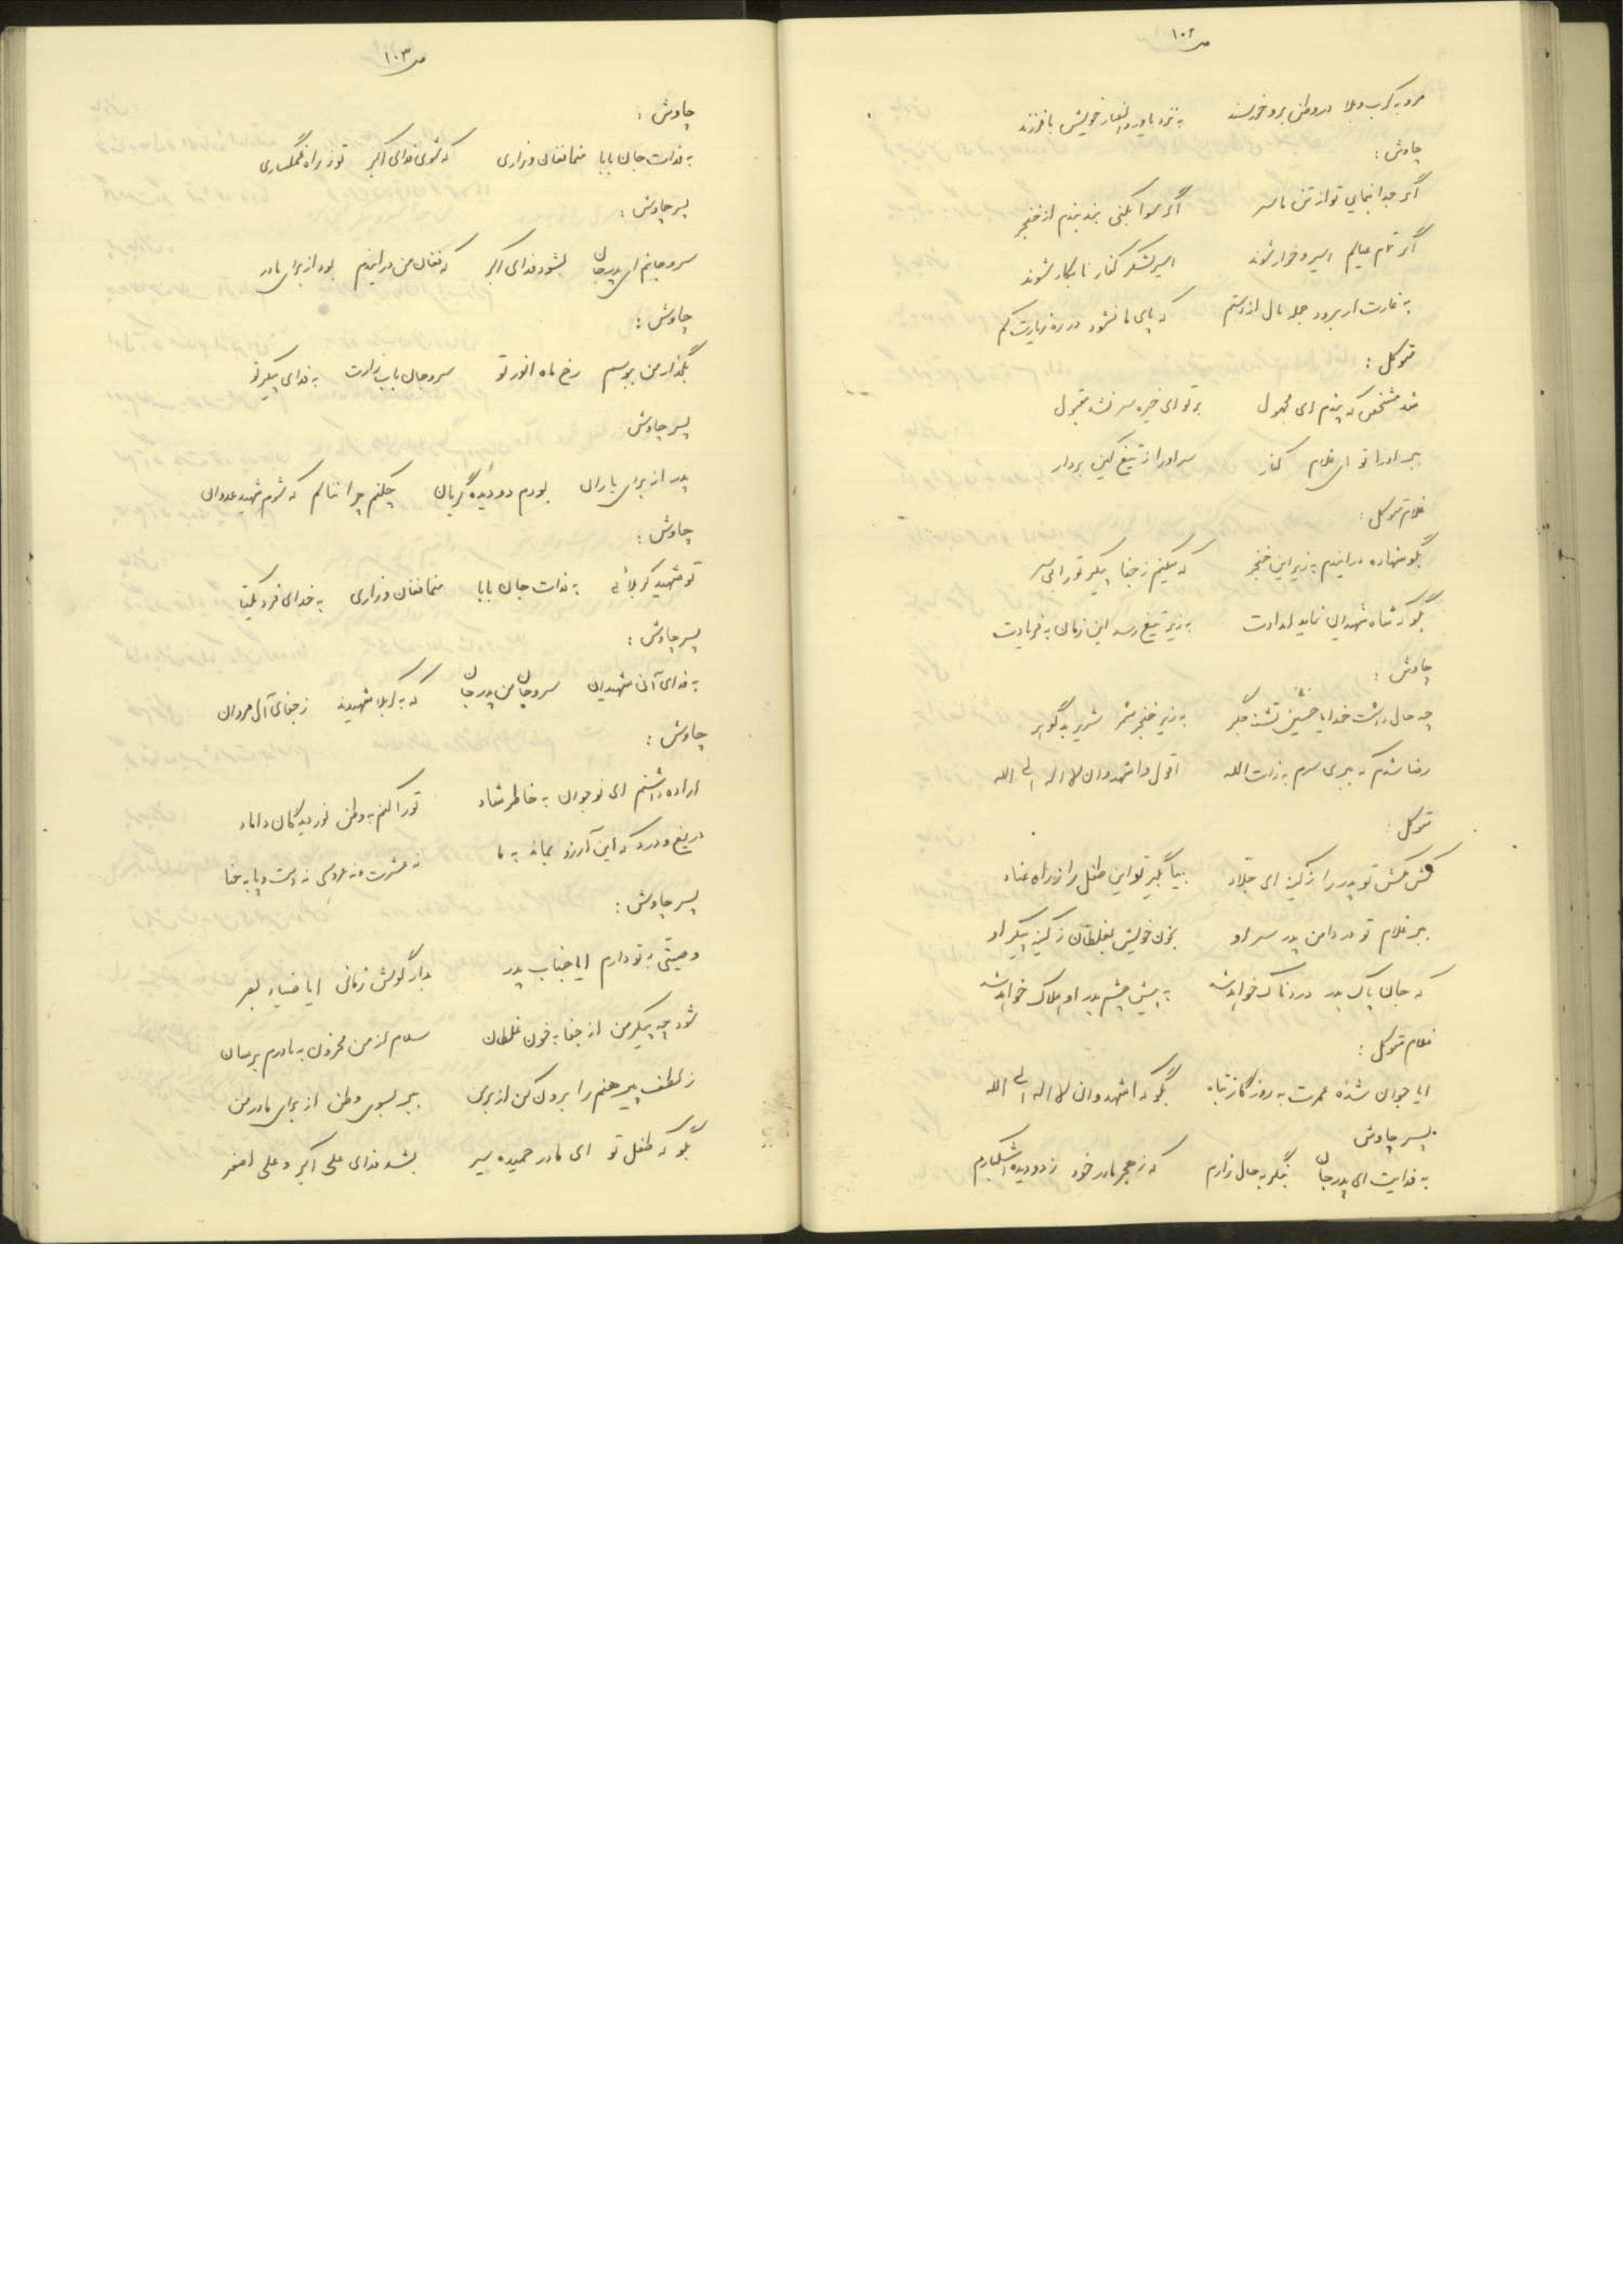 ص ۱۰۲
مرو به کرب و بلا در وطن برو خرسند به نزد یاور و انصار خویش با فرزند
چاوش :
اگر جدا بنمایی تو از تنم سر اگر سوا بکنی بند بندم از خنجر
اگر تمام عیالم اسیر و خوار شوند اسیر لشکر کفار نابکار شوند
به غارت ار برود جمله مال از دستم که پای ما نشود در ره زیارت کم
متوکل :
شد مشخص که پندم ای مجهول بر تو ای خیره سر نشد مقبول
ببر او را تو ای غلام کنار سر او را ز تیغ کین بردار
غلام متوکل :
گلو نهاده در ایندم به زیر این خنجر که میکنم ز جفا پیکر تو را بی سر
بگو که شاه شهیدان نماید امدادت به زیر تیغ رسد این زمان به فریادت
چاوش :
چه حال داشت خدایا حسین تشنه جگر به زیر خنجر شمر شریر بد گوهر
رضا شدم که ببری سرم به ذات الله اقول و اشهد و ان لا اله الی الله
متوکل :
مکش مکش تو پدر را ز کین ای جلاد بیا بگیر تو این طفل را ز راه عناد
ببر غلام تو در دامن پدر سر او بخون خویش بغلطان ز کینه پیکر او
که جان پاک پدر دردناک خواهد شد به پیش چشم پدر او هلاک خواهد شد
غلام متوکل :
ایا جوان شده عمرت به روزگار تباه بگو که اشهد و ان لا اله الی الله
پسر چاوش
به فدایت ای پدر جان بنگر به حال زارم که ز هجر مادر خود ز دو دیده اشکبارم
ص ۱۰۳
چاوش :
به فدات جان بابا منما فغان و زاری که شوی فدای اکبر تو ز راه غمگساری
پسر چاوش :
سر و جانم ای پدر جان بشود فدای اکبر که فغان من در ایندم بود از برای مادر
چاوش :
بگذار من ببوسم رخ ماه انور تو سر و جان باب زارت به فدای پیکر تو
پسر چاوش
پدر از برای یاران بودم دو دیده گریان چکنم چرا ننالم که شوم شهید عدوان
چاوش :
تو شهید کربلائی به فدات جان بابا منما فغان و زاری به خدای فرد یکتا
پسر چاوش :
به فدای آن شهیدان سر و جان من پدر جان که به کربلا شهیدند ز جفای آل مروان
چاوش :
اراده داشتم ای نوجوان به خاطر شاد تو را کنم به وطن نور دیدگان داماد
دریغ و درد که این آرزو بماند به ما نه عشرت و نه عروسی نه دست و پا به حنا
پسر چاوش :
وصیتی به تو دارم ایا جناب پدر بدار گوش زمانی ایا ضیاء بصر
شود چه پیکر من از جفا به خون غلطان سلام از من محزون به مادرم برسان
ز لطف پیرهنم را برون کن از بر من ببر بسوی وطن از برای مادر من
بگو که طفل تو ای مادر حمیده سیر بشد فدای علی اکبر و علی اصغر